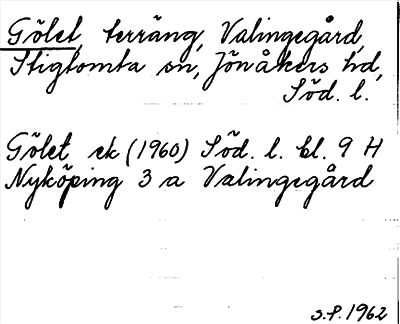 Gölet, terräng, Valingegård,
Stigtomta sn, Jönåkers hd,
Söd. l.
Gölet ek (1960) Söd. l. bl. 9 H
Nyköping 3 a Valingegård
S.P. 1962